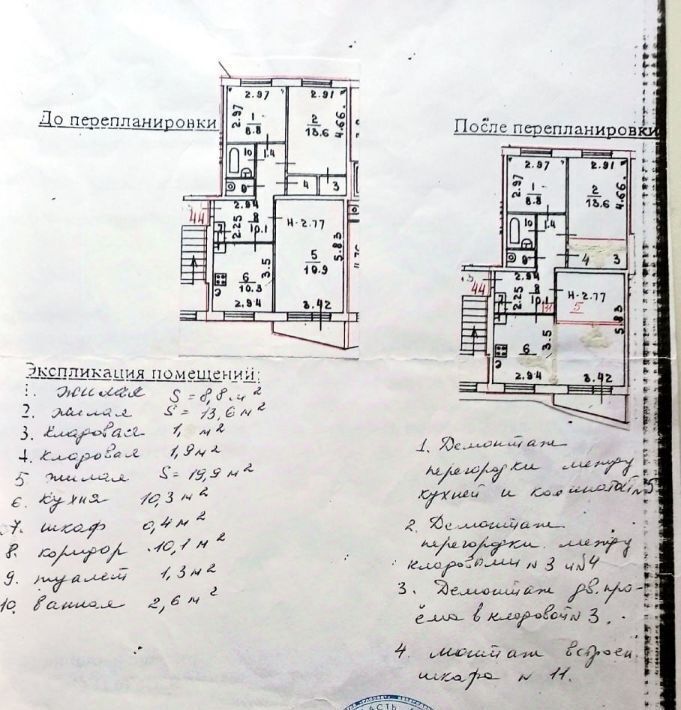 До перепланировки
2.97
2.91
2.97
1
8.8
2
13.6
4.66
10
1.4
9
4
3
44
2.94
2.25
8
10.1
н-2.77
5
19.9
5.83
6
10.3
3.5
2.94
3.42
После перепланировки
2.97
2.91
2.97
1
8.8
2
13.6
4.66
10
1.4
9
4
3
44
2.94
2.25
8
10.1
н-2.77
5
5.83
6
3.5
2.94
3.42
Экспликация помещений:
1. жилая S = 8,8 м²
2. жилая S = 13,6 м²
3. кладовая 1, м²
4. кладовая 1,9 м²
5 жилая S = 19,9 м²
6. кухня 10,3 м²
7. шкаф 0,4 м²
8. коридор 10,1 м²
9. туалет 1,3 м²
10. ванная 2,6 м²
1. Демонтаж
перегородки между
кухней и комнатой №5
2. Демонтаж
перегородки между
кладовыми №3 и №4
3. Демонтаж дв. про-
ёма в кладовой №3.
4. монтаж встроен.
шкафа № 11.